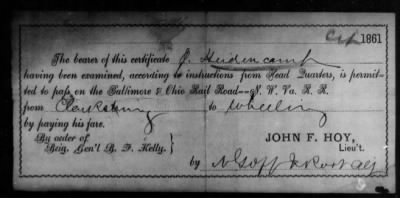 1861
The bearer of this certificate J. Heidencamp
having been examined, according to instructions from Head Quarters, is permit-
ted to pass on the Baltimore & Ohio Rail Road--N. W. Va. R. R.
from Clarksburg to Wheeling
by paying his fare.
By order of
Brig. Gen'l B. F. Kelly.
JOHN F. HOY,
Lieu't.
by N Goff